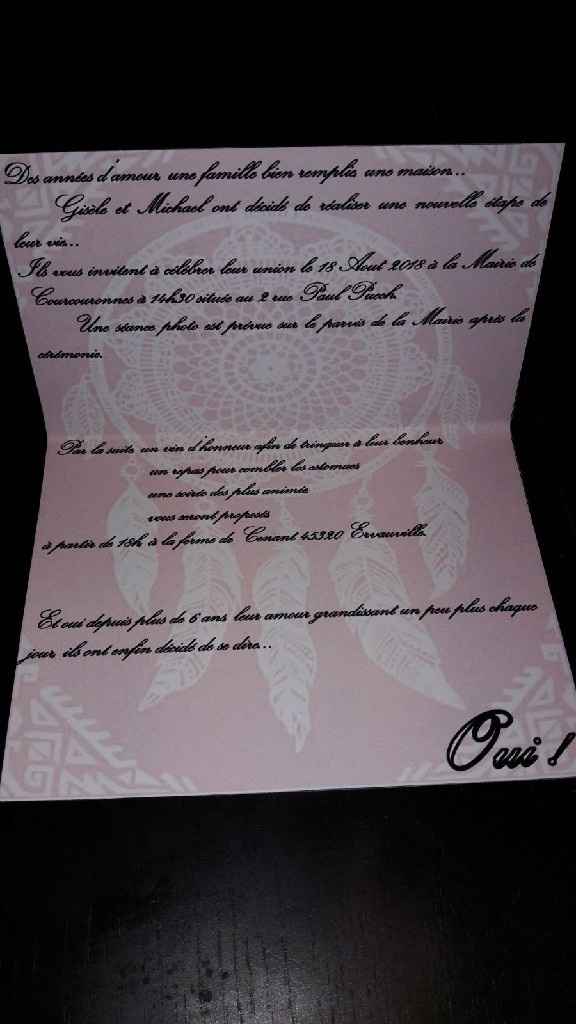 Des années d'amour une famille bien remplis une maison...
Gisèle et Michael ont décidé de réaliser une nouvelle étape de
leur vie...
Ils vous invitent à célébrer leur union le 18 Aout 2018 à la Mairie de
Courcouronnes à 14h30 située au 2 rue Paul Puech.
Une séance photo est prévue sur le parvis de la Mairie après la
cérémonie.
Par la suite un vin d'honneur afin de trinquer à leur bonheur
un repas pour combler les estomacs
une soirée des plus animée
vous seront proposés
à partir de 18h à la ferme de Cenant 45320 Ervauville.
Et oui depuis plus de 6 ans leur amour grandissant un peu plus chaque
jour ils ont enfin décidé de se dire...
Oui !